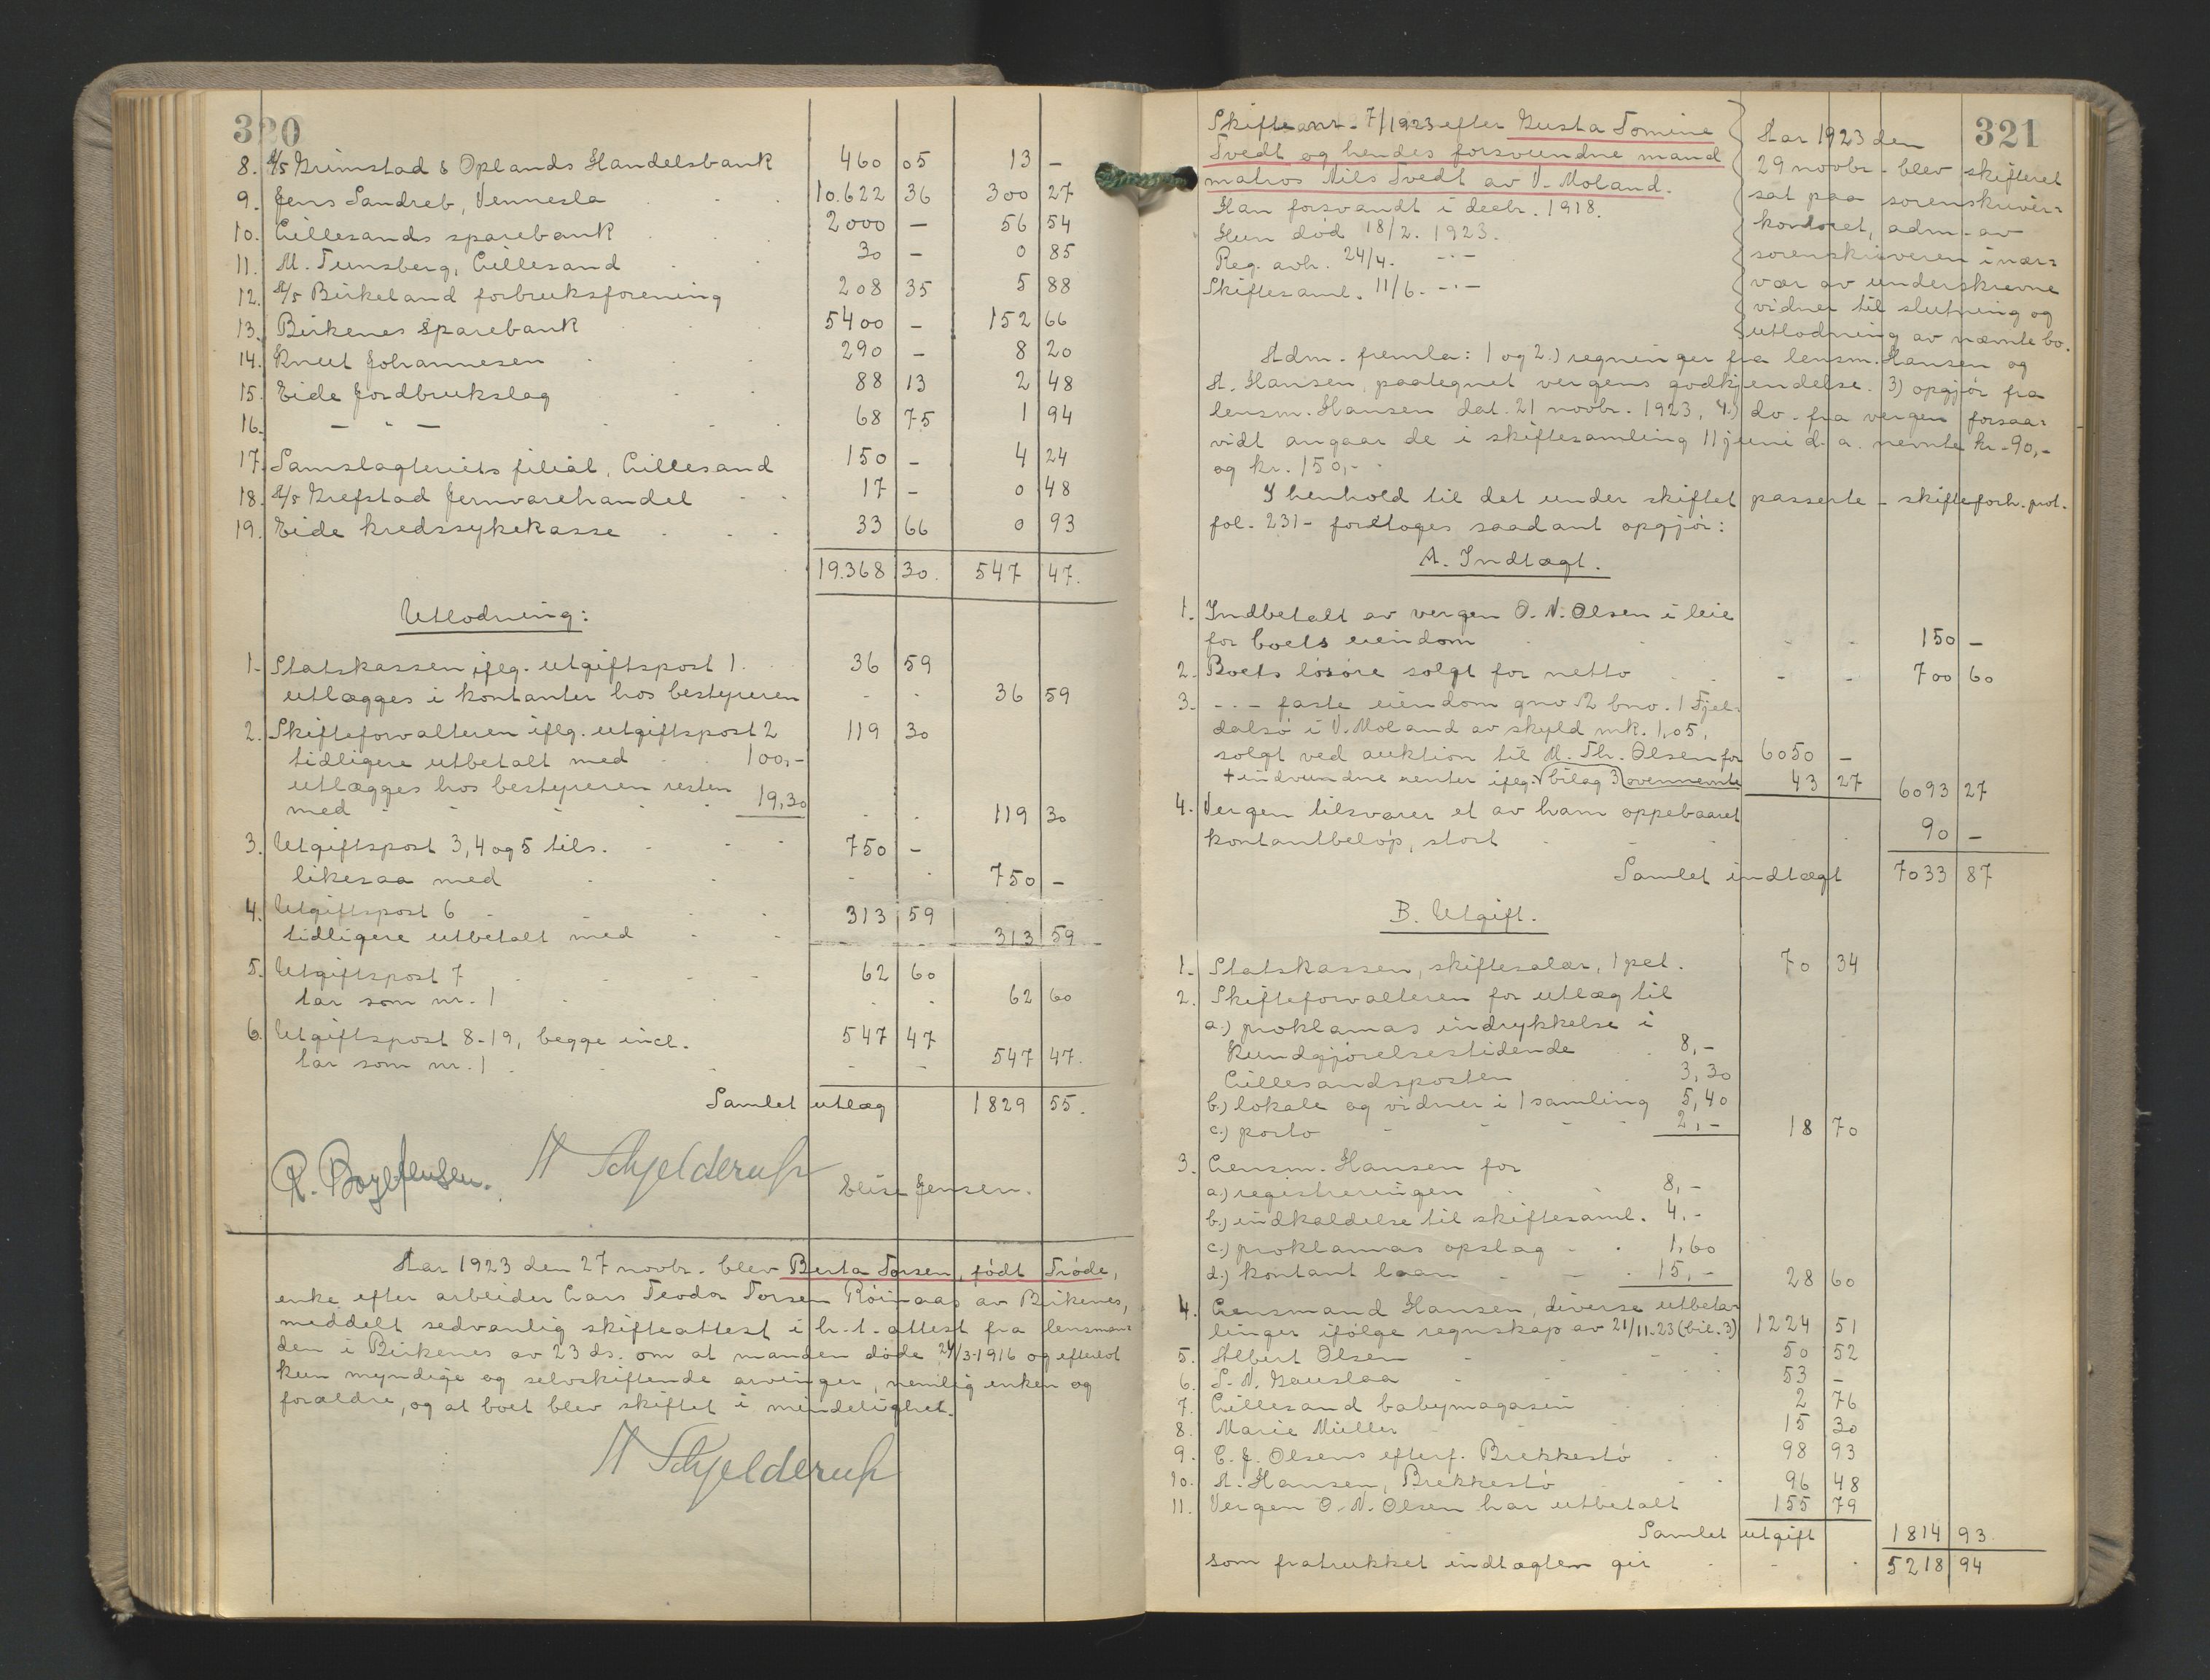 320
8. A/S Grimstad & Oplands Handelsbank 460 05 13 –
9. Jens Landreb, Vennesla 10.622 36 300 27
10. Lillesands sparebank 2000 – 56 54
11. M. Tunsberg, Lillesand 30 – 0 85
12. A/S Birkeland forbruksforening 208 35 5 88
13. Birkenes sparebank 5400 – 152 66
14. Knut Johannesen 290 – 8 20
15. Eide Jordbrukslag 88 13 2 48
16. – " – 68 75 1 94
17. Samslagteriets filial, Lillesand 150 – 4 24
18. A/S Grefstad Jernvarehandel 17 – 0 48
19. Eide kredssykekasse 33 66 0 93
19.368 30. 547 47.
Utlodning:
1. Statskassen iflg. utgiftspost 1. 36 59
utlægges i kontanter hos bestyreren 36 59
2. Skifteforvalteren iflg. utgiftspost 2 119 30
tidligere utbetalt med 100,–
utlægges hos bestyreren resten
med 19,30 119 30
3. Utgiftspost 3, 4 og 5 tils. 750 –
likesaa med 750 –
4. Utgiftspost 6 313 59
tidligere utbetalt med 313 59
5. Utgiftspost 7 62 60
tar som nr. 1 62 60
6. Utgiftspost 8-19, begge incl. 547 47
tar som nr. 1 547 47.
Samlet utlæg 1829 55.
R. Boye Jensen. H Schjelderup Elise Jensen.
Aar 1923 den 27 novbr. blev Berta Torsen, født Trøde,
enke efter arbeider Lars Teodor Torsen Röinaas av Birkenes,
meddelt sedvanlig skifteattest i h.t. attest fra lensman-
den i Birkenes av 23 ds. om at manden døde 24/3-1916 og efterlot
kun myndige og selvskiftende arvinger, nemlig enken og
forældre, og at boet blev skiftet i mindelighet.
H Schjelderup
321
Skifteanr. 7/1923 efter Gusta Tomine
Tvedt og hendes forsvundne mand
matros Nils Tvedt av V. Moland.
Han forsvandt i decbr. 1918.
Hun död 18/2. 1923.
Reg. avh. 24/4. –·–
Skiftesaml. 11/6. –·–
Aar 1923 den
29 novbr. blev skifteret
sat paa sorenskriver-
kontoret, adm. av
sorenskriveren i nær-
vær av underskrevne
vidner til slutning og
utlodning av nævnte bo.
Adm. fremla: 1 og 2.) regninger fra lensm. Hansen og
A. Hansen, paategnet vergens godkjendelse. 3) opgjör fra
lensm. Hansen dat. 21 novbr. 1923, 4.) do. fra vergen forsaa-
vidt angaar de i skiftesamling 11 juni d.a. nevnte kr. 90,–
og kr. 150,–.
I henhold til det under skiftet passerte – skifteforh.prot.
fol. 231 – foretoges saadant opgjör:
A. Indtægt.
1. Indbetalt av vergen O. N. Olsen i leie
for boets eiendom 150 –
2. Boets lösöre solgt for netto 700 60
3. –·– faste eiendom gno 2 bno. 1 Fjel-
dalsö i V. Moland av skyld mk. 1,05,
solgt ved auktion til M. Th. Olsen for 6050 –
+ indvundne renter iflg. ovennevnte bilag 3 43 27 6093 27
4. Vergen tilsvarer et av ham oppebaaret
kontantbelöp, stort 90 –
Samlet indtægt 7033 87
B. Utgift.
1. Statskassen, skiftesalær, 1 pct. 70 34
2. Skifteforvalteren for utlæg til
a.) proklamas indrykkelse i
Kundgjörelsestidende 8,–
Lillesandsposten 3,30
b.) lokale og vidner i 1 samling 5,40
c.) porto 2,– 18 70
3. Lensm. Hansen for
a.) registreringen 8,–
b.) indkaldelse til skiftesaml. 4,–
c.) proklamas opslag 1,60
d.) kontant laan 15,– 28 60
4. Lensmand Hansen, diverse utbeta-
linger ifölge regnskap av 21/11-23 (bil. 3) 1224 51
5. Albert Olsen 50 52
6. S. N. Gauslaa 53 –
7. Lillesand babymagasin 2 76
8. Marie Müller 15 30
9. C. J. Olsens efterf. Brekkestö 98 93
10. A. Hansen, Brekkestö 96 48
11. Vergen O. N. Olsen har utbetalt 155 79
Samlet utgift 1814 93
som fratrukket indtægten gir 5218 94